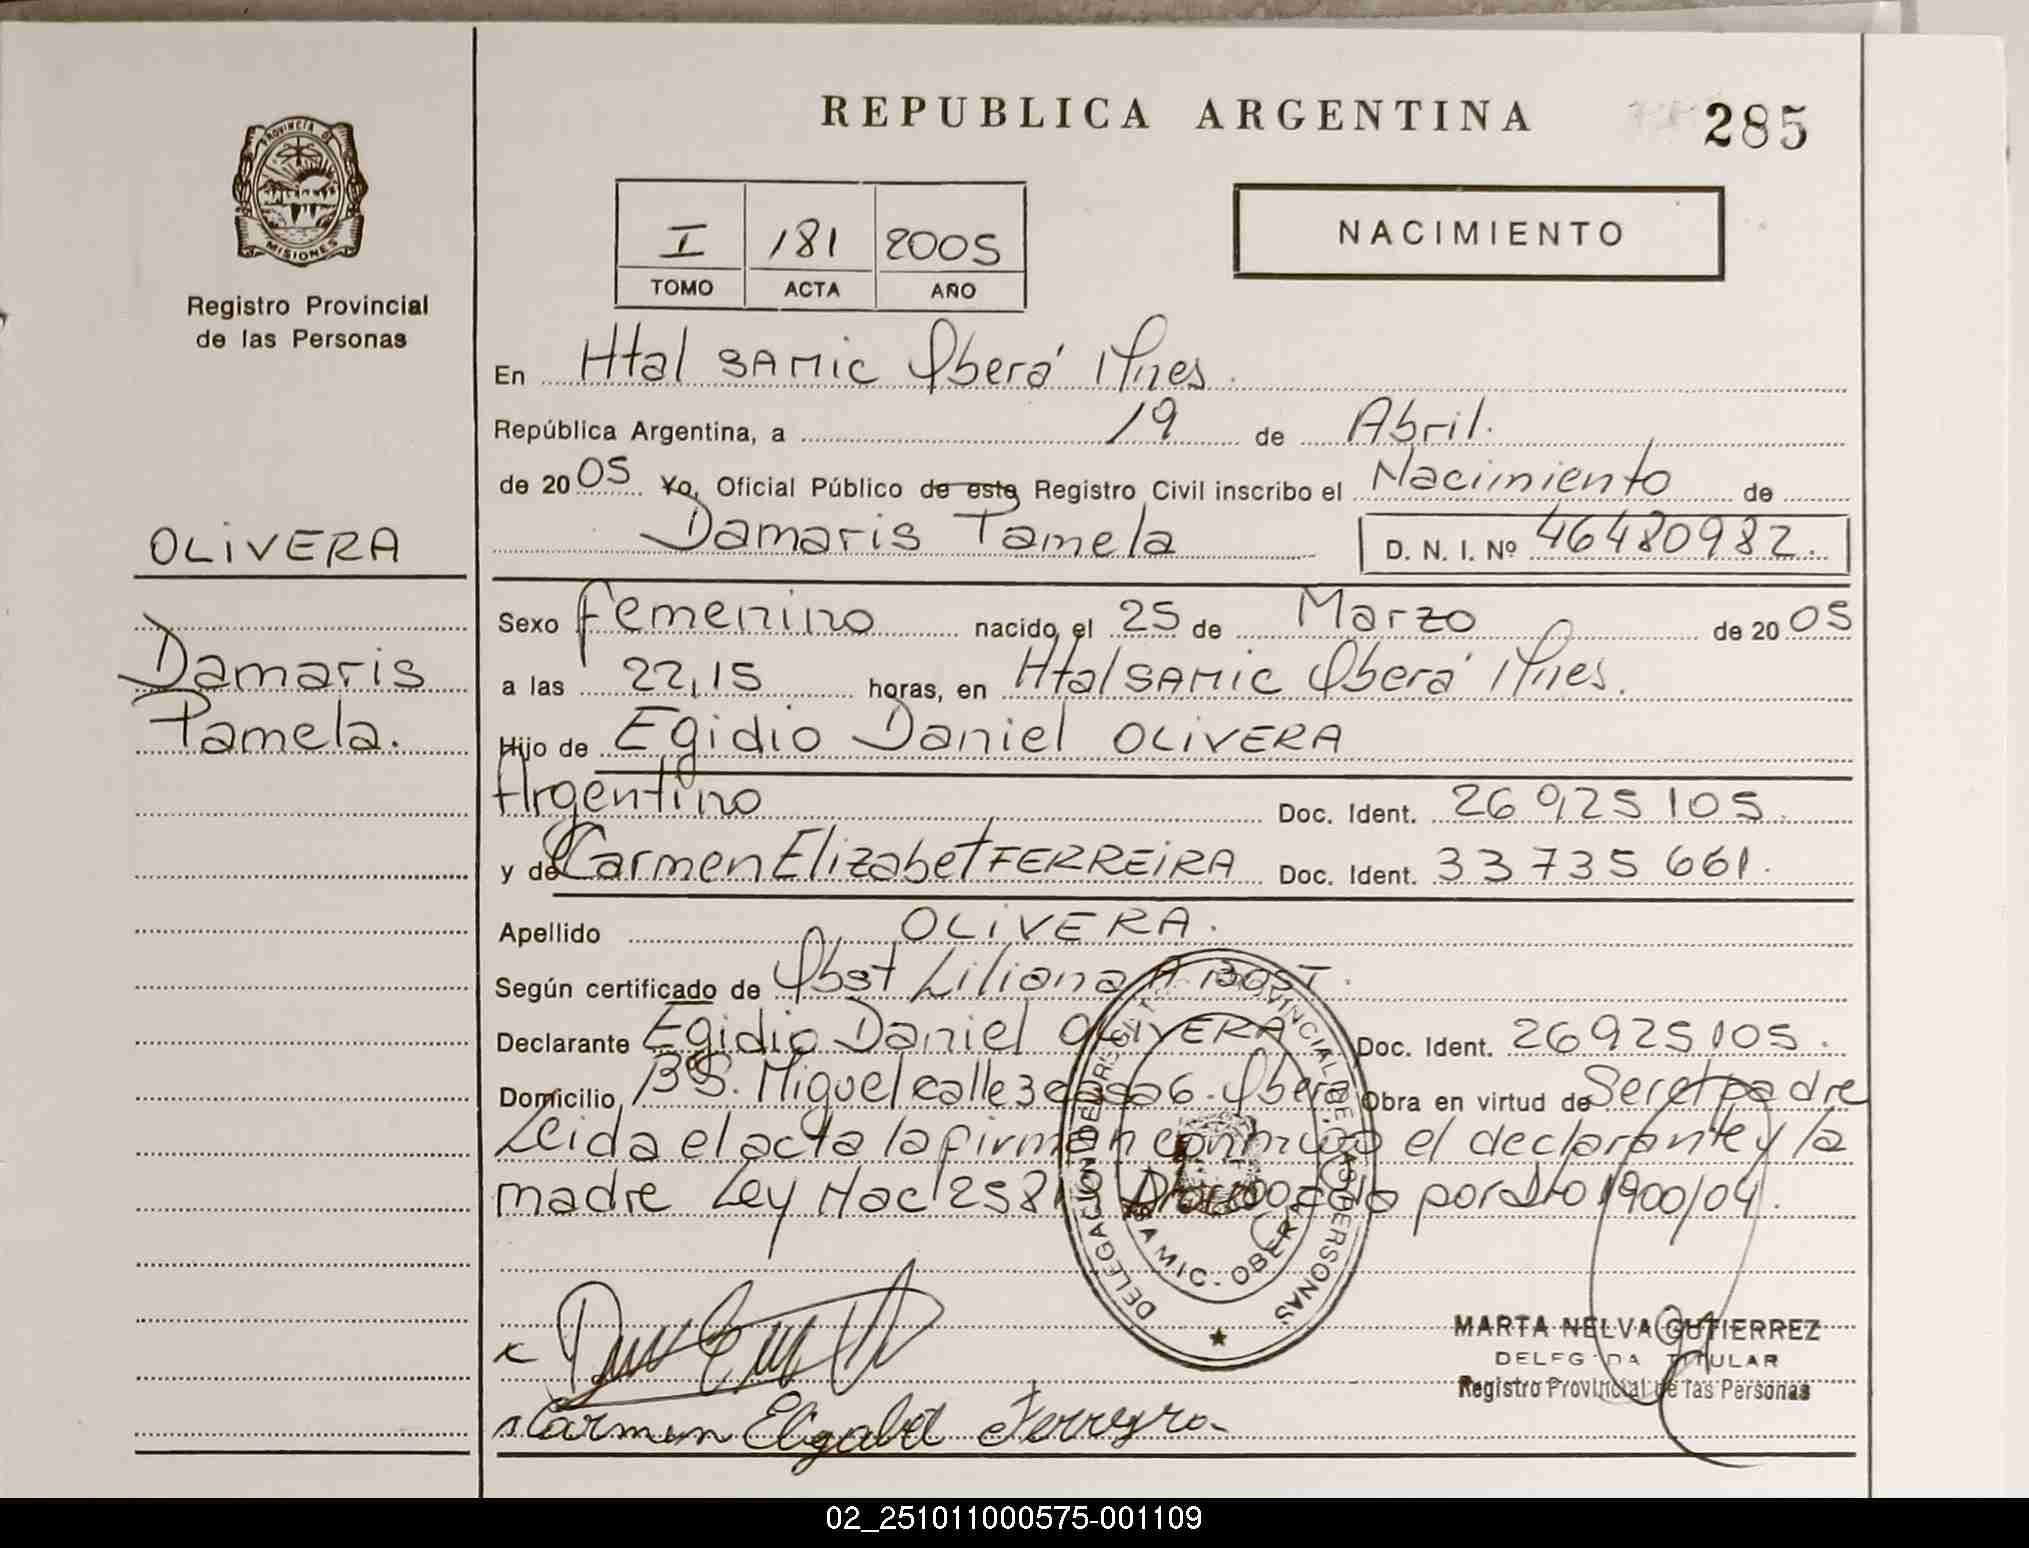 REPUBLICA ARGENTINA
285
PROVINCIA DE
MISIONES
Registro Provincial
de las Personas
I 181 2005
TOMO ACTA AÑO
NACIMIENTO
En Htal SAMIC Oberá Mnes.
República Argentina, a 19 de Abril.
de 2005 Yo, Oficial Público de este Registro Civil inscribo el Nacimiento de
Damaris Pamela D. N. I. Nº 46480982.
OLIVERA
Damaris
Pamela.
Sexo femenino nacido el 25 de Marzo de 2005
a las 22,15 horas, en Htal SAMIC Oberá Mnes.
Hijo de Egidio Daniel OLIVERA
Argentino Doc. Ident. 26925105.
y de Carmen Elizabet FERREIRA Doc. Ident. 33735661.
Apellido OLIVERA.
Según certificado de Obst Liliana A BOST.
Declarante Egidio Daniel OLIVERA Doc. Ident. 26925105.
Domicilio Bº S. Miguel calle 3 casa 6. Oberá Obra en virtud de Ser el padre
Leida el acta la firman conmigo el declarante y la
madre Ley Nac 2581 por Dto 1900/04.
DELEGACION DEL REGISTRO PROVINCIAL DE LAS PERSONAS
SAMIC - OBERA
MARTA NELVA GUTIERREZ
DELEGADA TITULAR
Registro Provincial de las Personas
Carmen Elizabet Ferreyra
02_251011000575-001109